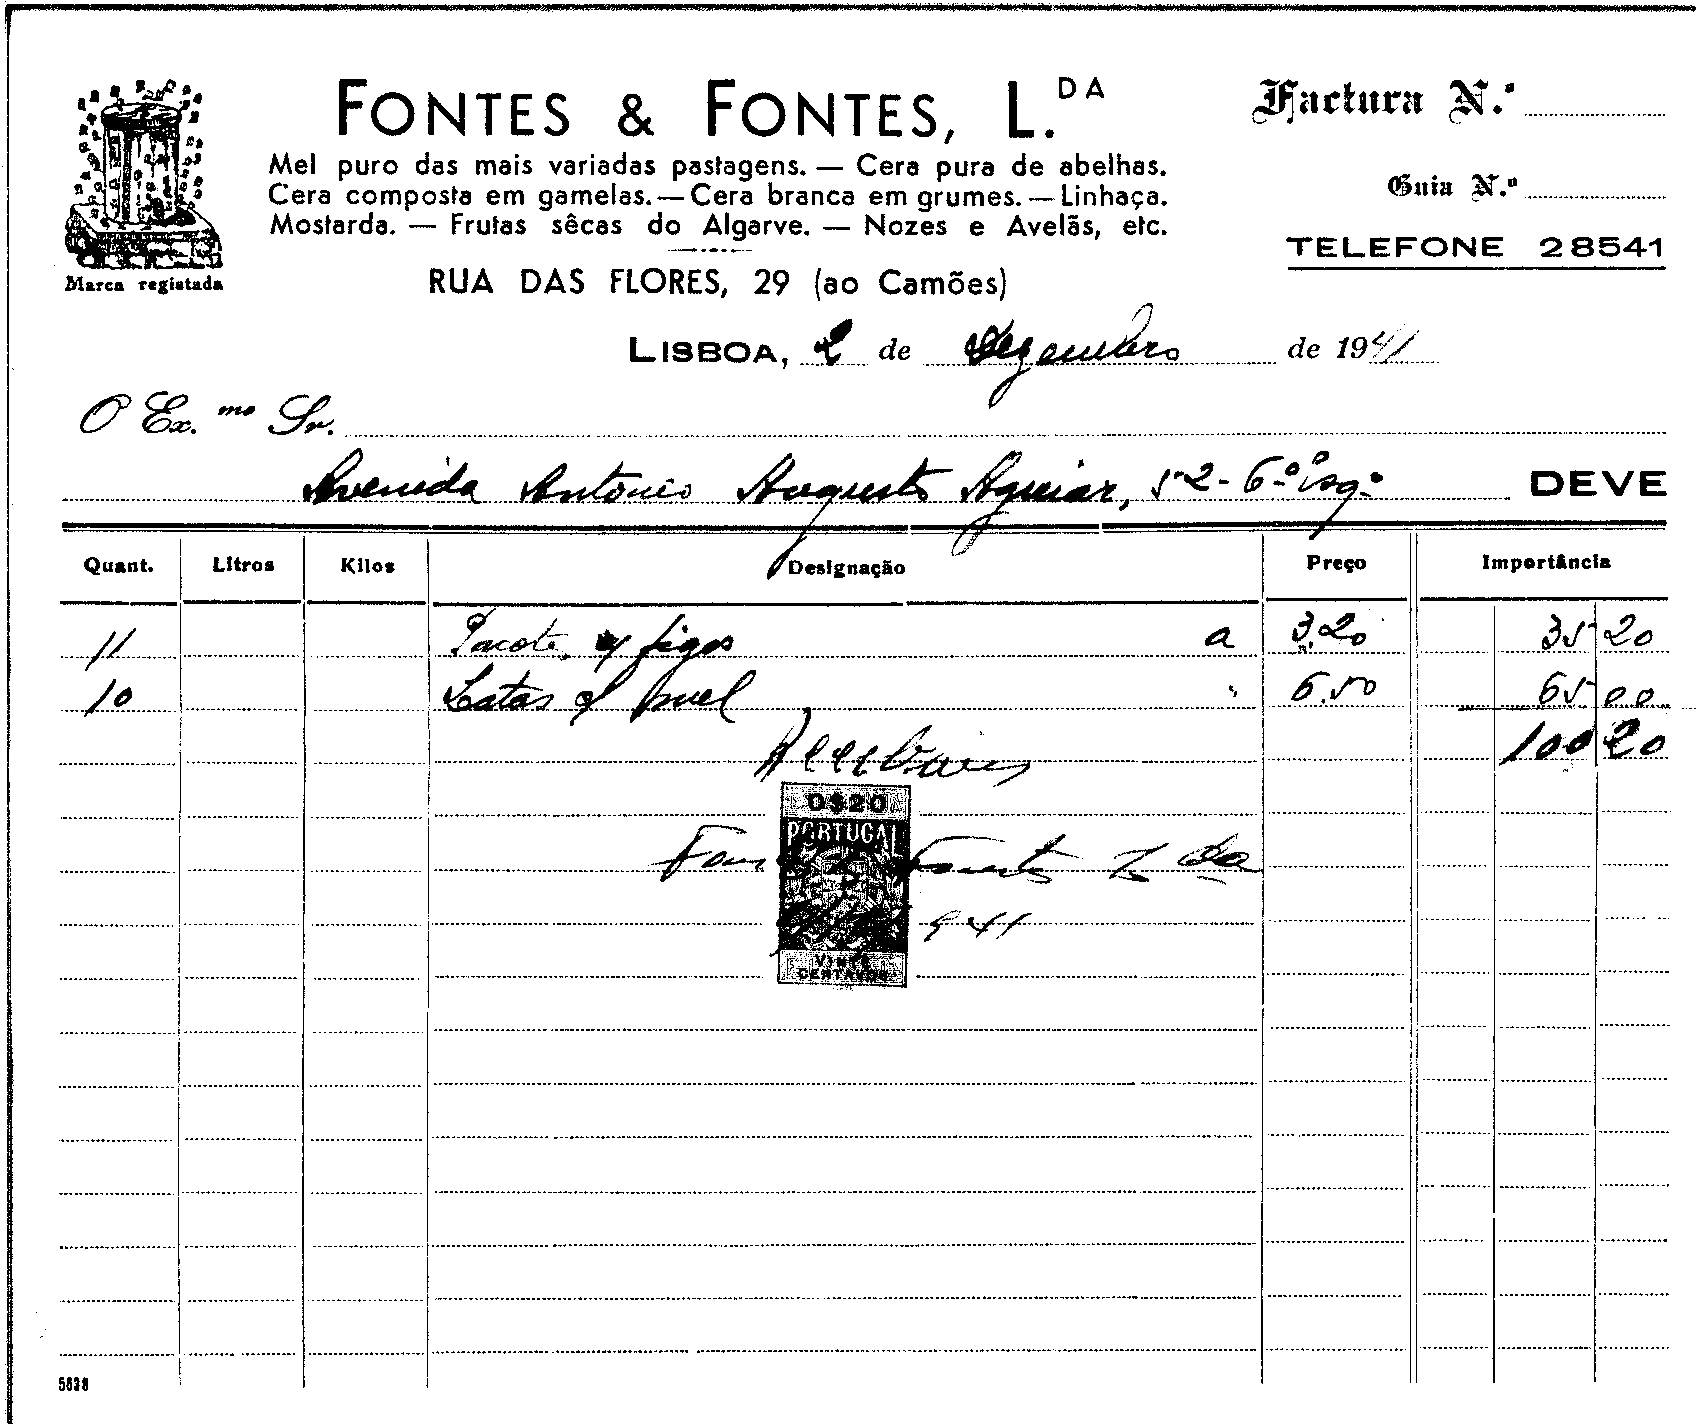 FONTES & FONTES, L.DA
Mel puro das mais variadas pastagens. — Cera pura de abelhas.
Cera composta em gamelas. — Cera branca em grumes. — Linhaça.
Mostarda. — Frutas sêcas do Algarve. — Nozes e Avelãs, etc.
RUA DAS FLORES, 29 (ao Camões)
Marca registada
Factura N.º
Guia N.º
TELEFONE 28541
LISBOA, 2 de Dezembro de 1941
O Ex.mo Sr.
Avenida Antonio Augusto Aguiar, 52-6º esqº DEVE
Quant. Litros Kilos Designação Preço Importância
11 Pacotes figos a 3,20 35 20
10 Latas mel " 6.50 65 00
100 20
Recebemos
0$20
PORTUGAL
Fontes & Fontes Lda
941
VINTE
CENTAVOS
5638